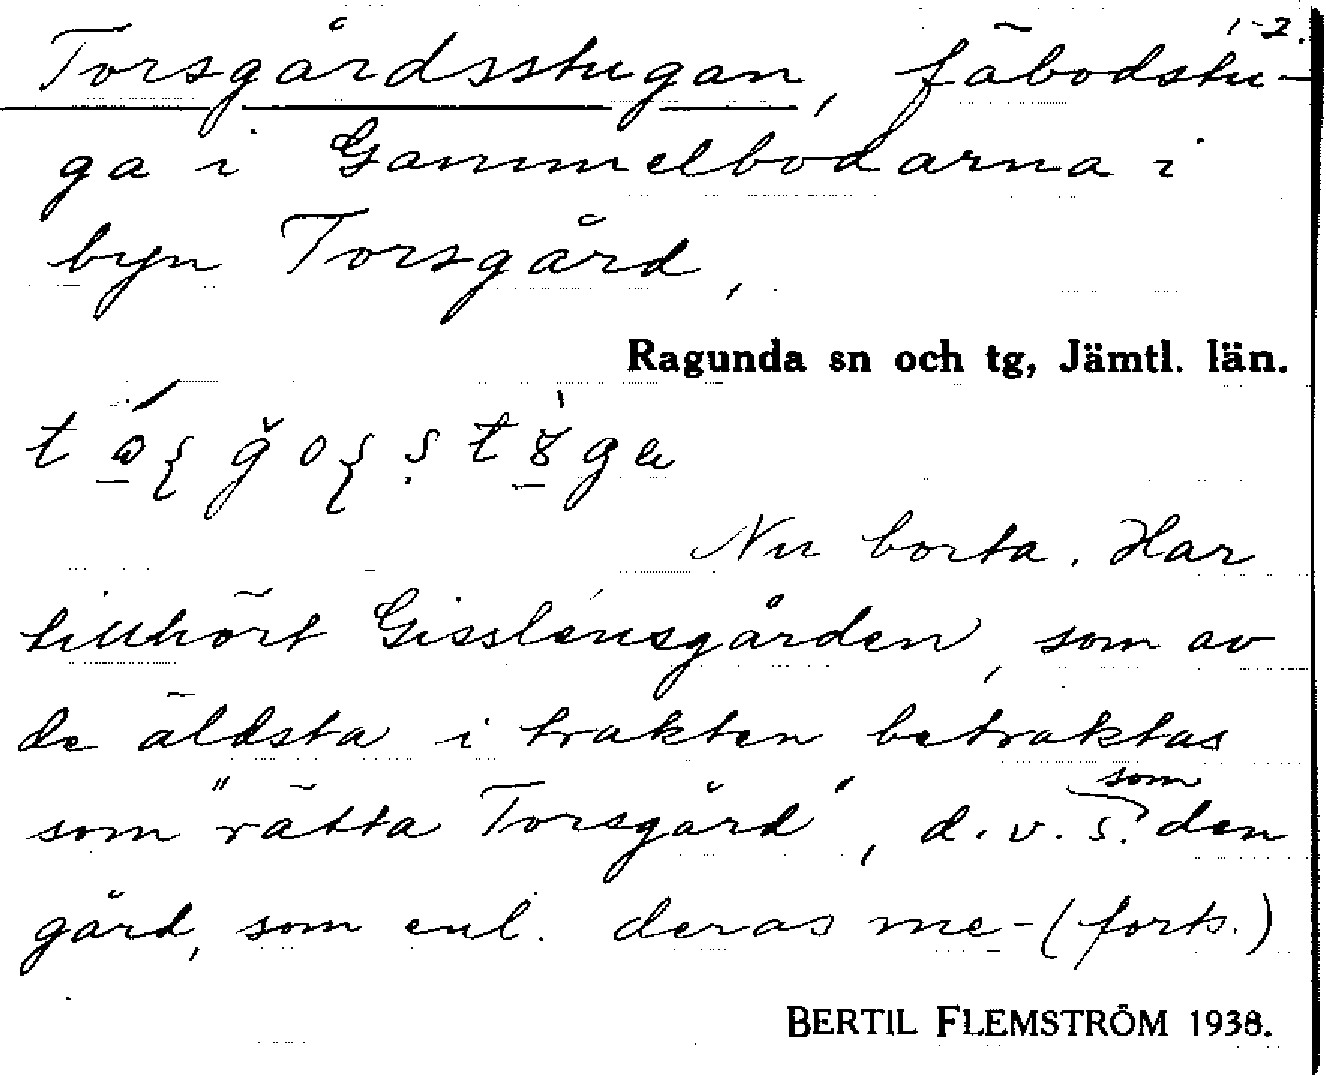 1-2.
Torsgårdsstugan, fäbodstu-
ga i Gammelbodarna i
byn Torsgård,
Ragunda sn och tg, Jämtl. län.
Nu borta. Har
tillhört Gisslénsgården, som av
de äldsta i trakten betraktas
som "rätta Torsgård", d.v.s. som den
gård, som enl. deras me-(forts.)
BERTIL FLEMSTRÖM 1938.